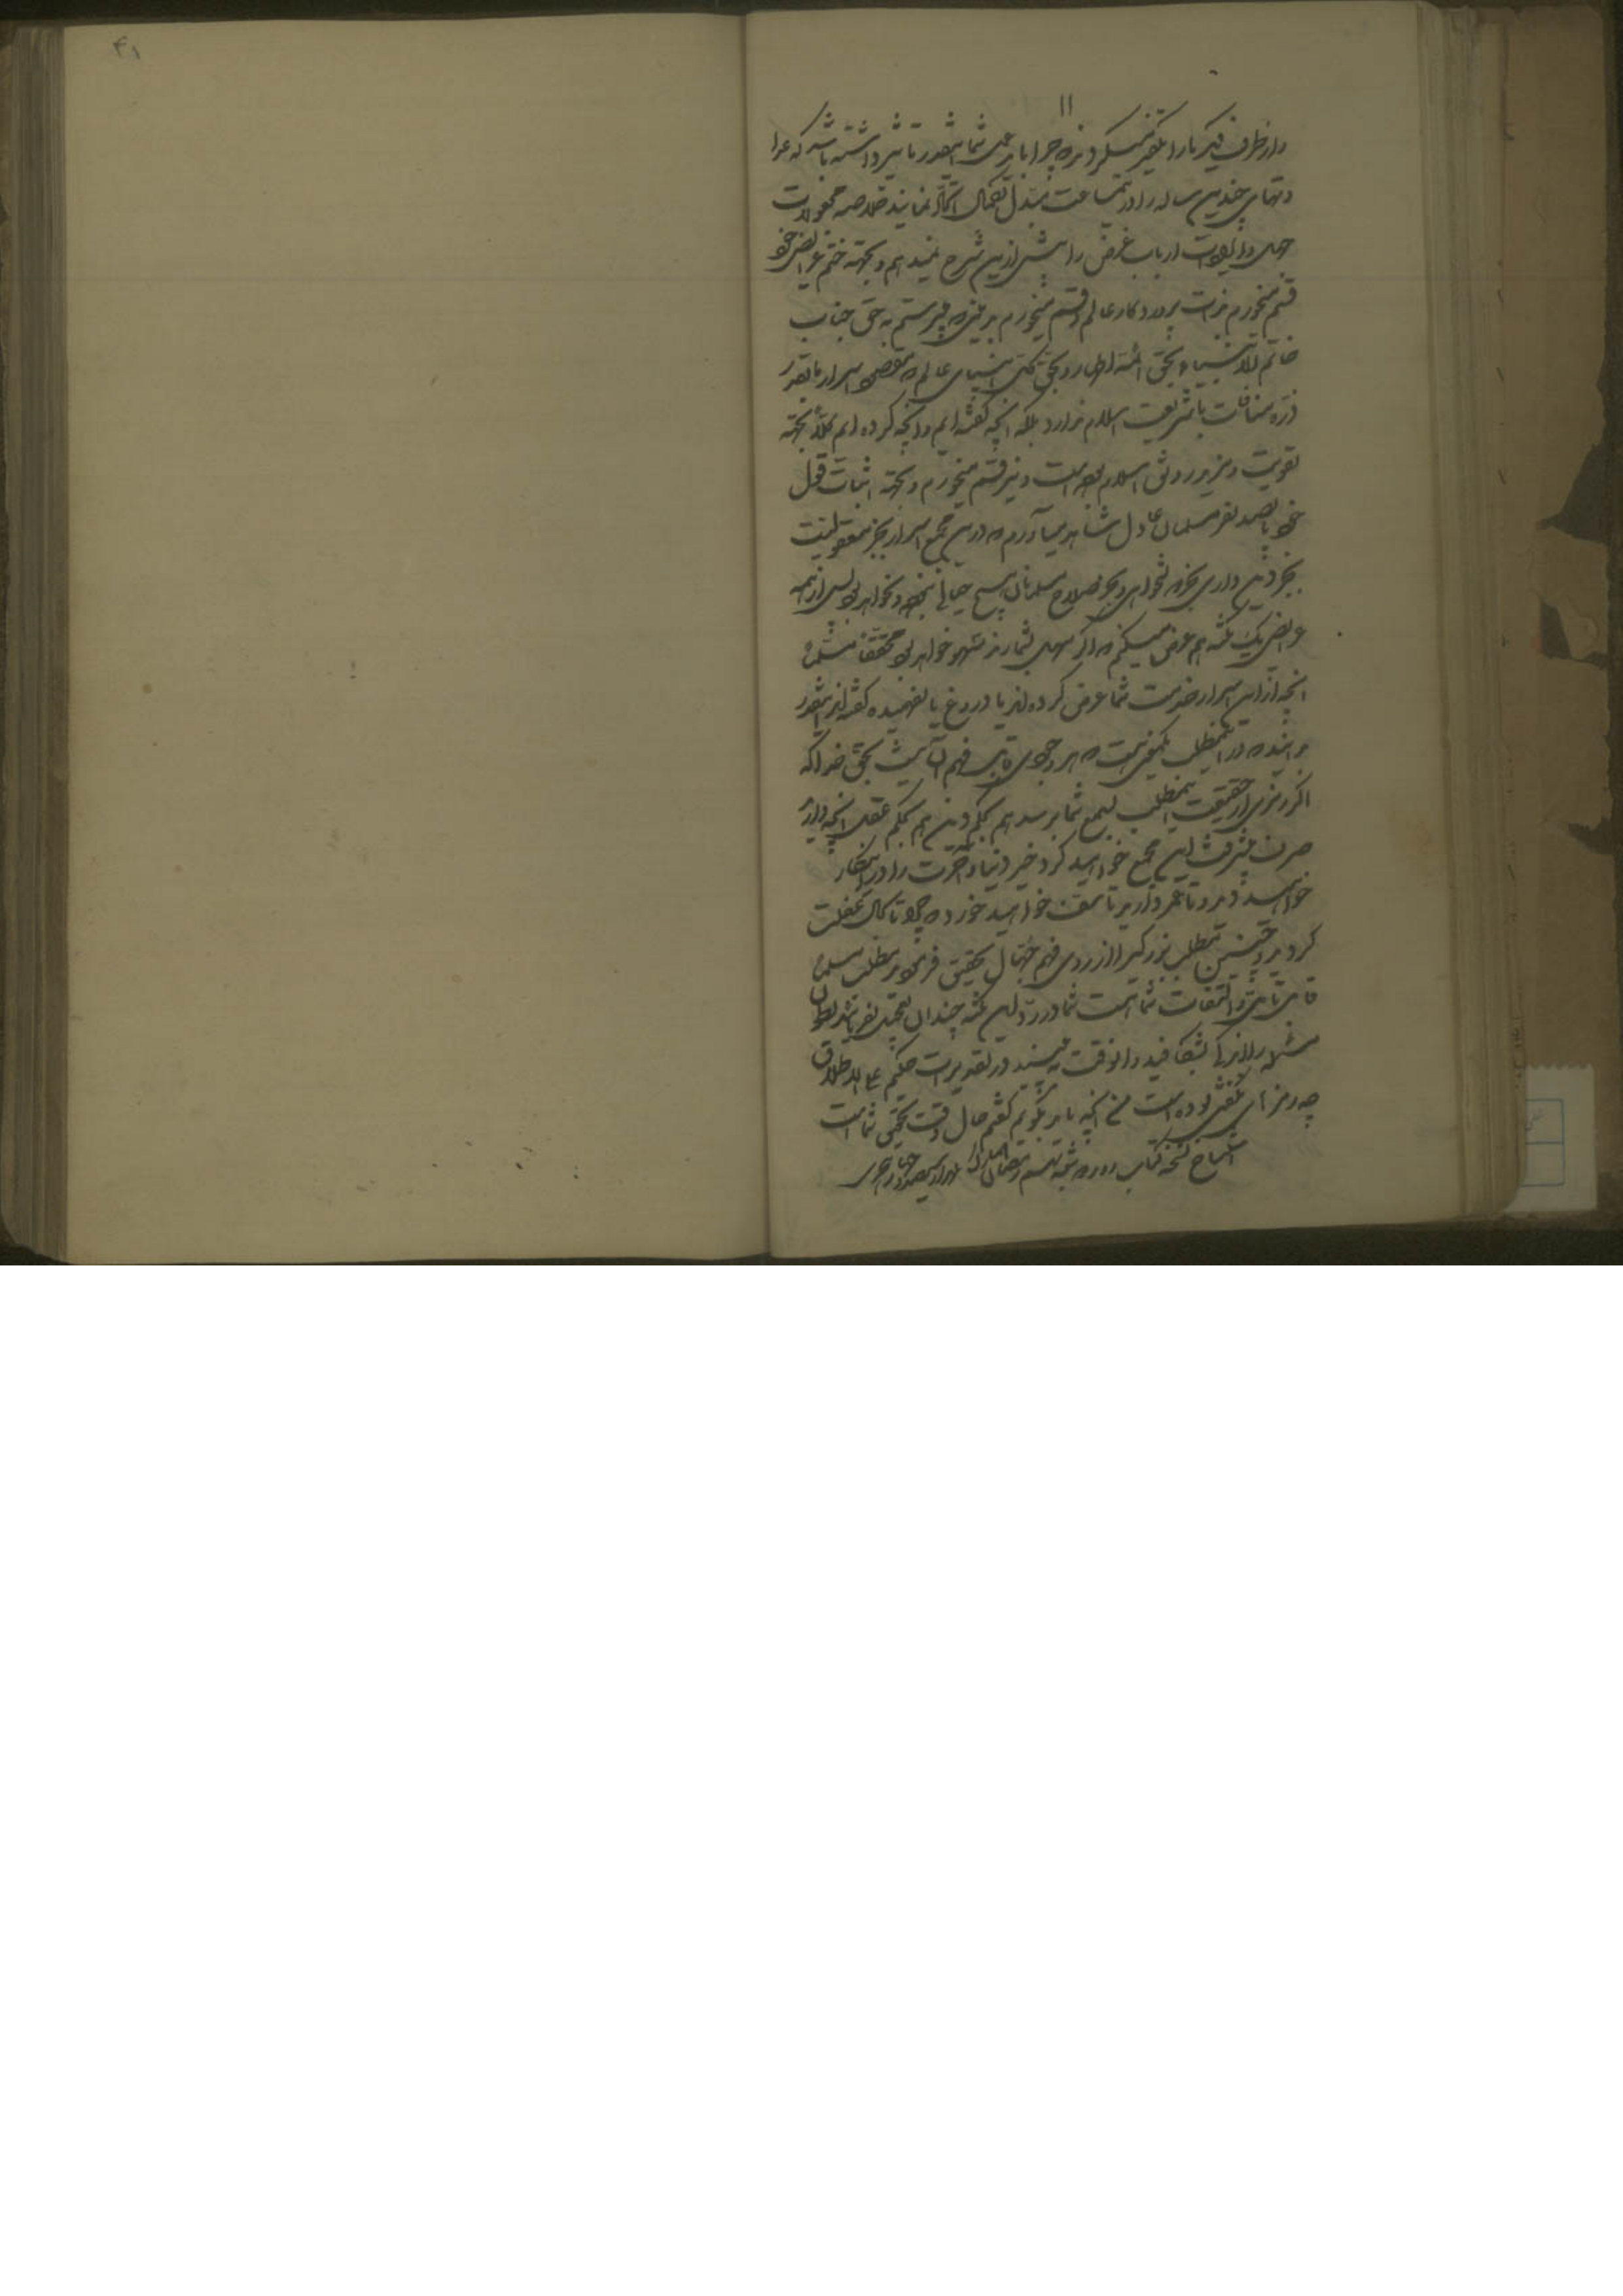 ۴۱
۱۱
و از طرف دیگر ما را تکفیر میکردند که چرا باید عمل شما اینقدر تاثیر داشته باشد که عدا
وتهای چندین ساله را در یکساعت مبدل بکمال اتحاد نمایند خلاصه مجعولات
جهال و ایرادات ارباب غرض را بیش ازین شرح نمیدهم و بجهته ختم عرایض خود
قسم میخورم بذات پروردگار عالم و قسم میخورم بر دینی که میپرستم به حق جناب
خاتم الانبیاء و بحق ائمه اطهار و بحق کل انبیای عالم که مقصود اسرار ما بقدر
ذره منافات با شریعت اسلام ندارد بلکه آنچه گفته ایم و آنچه کرده ایم کلاً بجهته
تقویت و مزید رونق اسلام بوده است و نیز قسم میخورم و بجهته اثبات قول
خود پانصد نفر مسلمان عادل شاهد میآورم که درین مجمع اسرار بجز معقولیت
بجز دین داری بجز دولتخواهی و بجز صلاح مسلمانان هیچ خیالی نبوده و نخواهد بود پس از همه
عرایض یک نکته هم عرض میکنم که اگر جهال بشمارند سهو خواهد بود محققاً
آنچه از این اسرار خدمت شما عرض کرده اند یا دروغ یا نفهمیده گفته اند اینقدر
بدانید که در اینمطلب یک معنی هست که هر وجودی قابل فهم آن نیست بحق خدا که
اگر رمزی از حقیقت اینمطلب بسمع شما برسد هم بحکم دین هم بحکم عقل آنچه دارید
صرف پیشرفت این مجمع خواهید کرد خیر دنیا و آخرت را در اینکار
خواهید دید و تا عمر دارید تاسف خواهید خورد که چرا تا کنون غفلت
کردید و چنین مطلب بزرگی را از روی فهم جهال تحقیق فرمودید مطلب ما
قابل تأمل و التفات شما است شما در رد این نکته چندان تعجیل نفرمائید
شبهه را اندکی بشکافید و آنوقت ببینید در تقدیرات حکیم علی الاطلاق
چه رمزهای مخفی بوده است من آنچه باید بگویم گفتم حال وقت تحقیق شما است
استنساخ نسخه کتاب روز سه شنبه بیستم رمضان المبارک هزار و سیصد و چهار هجری